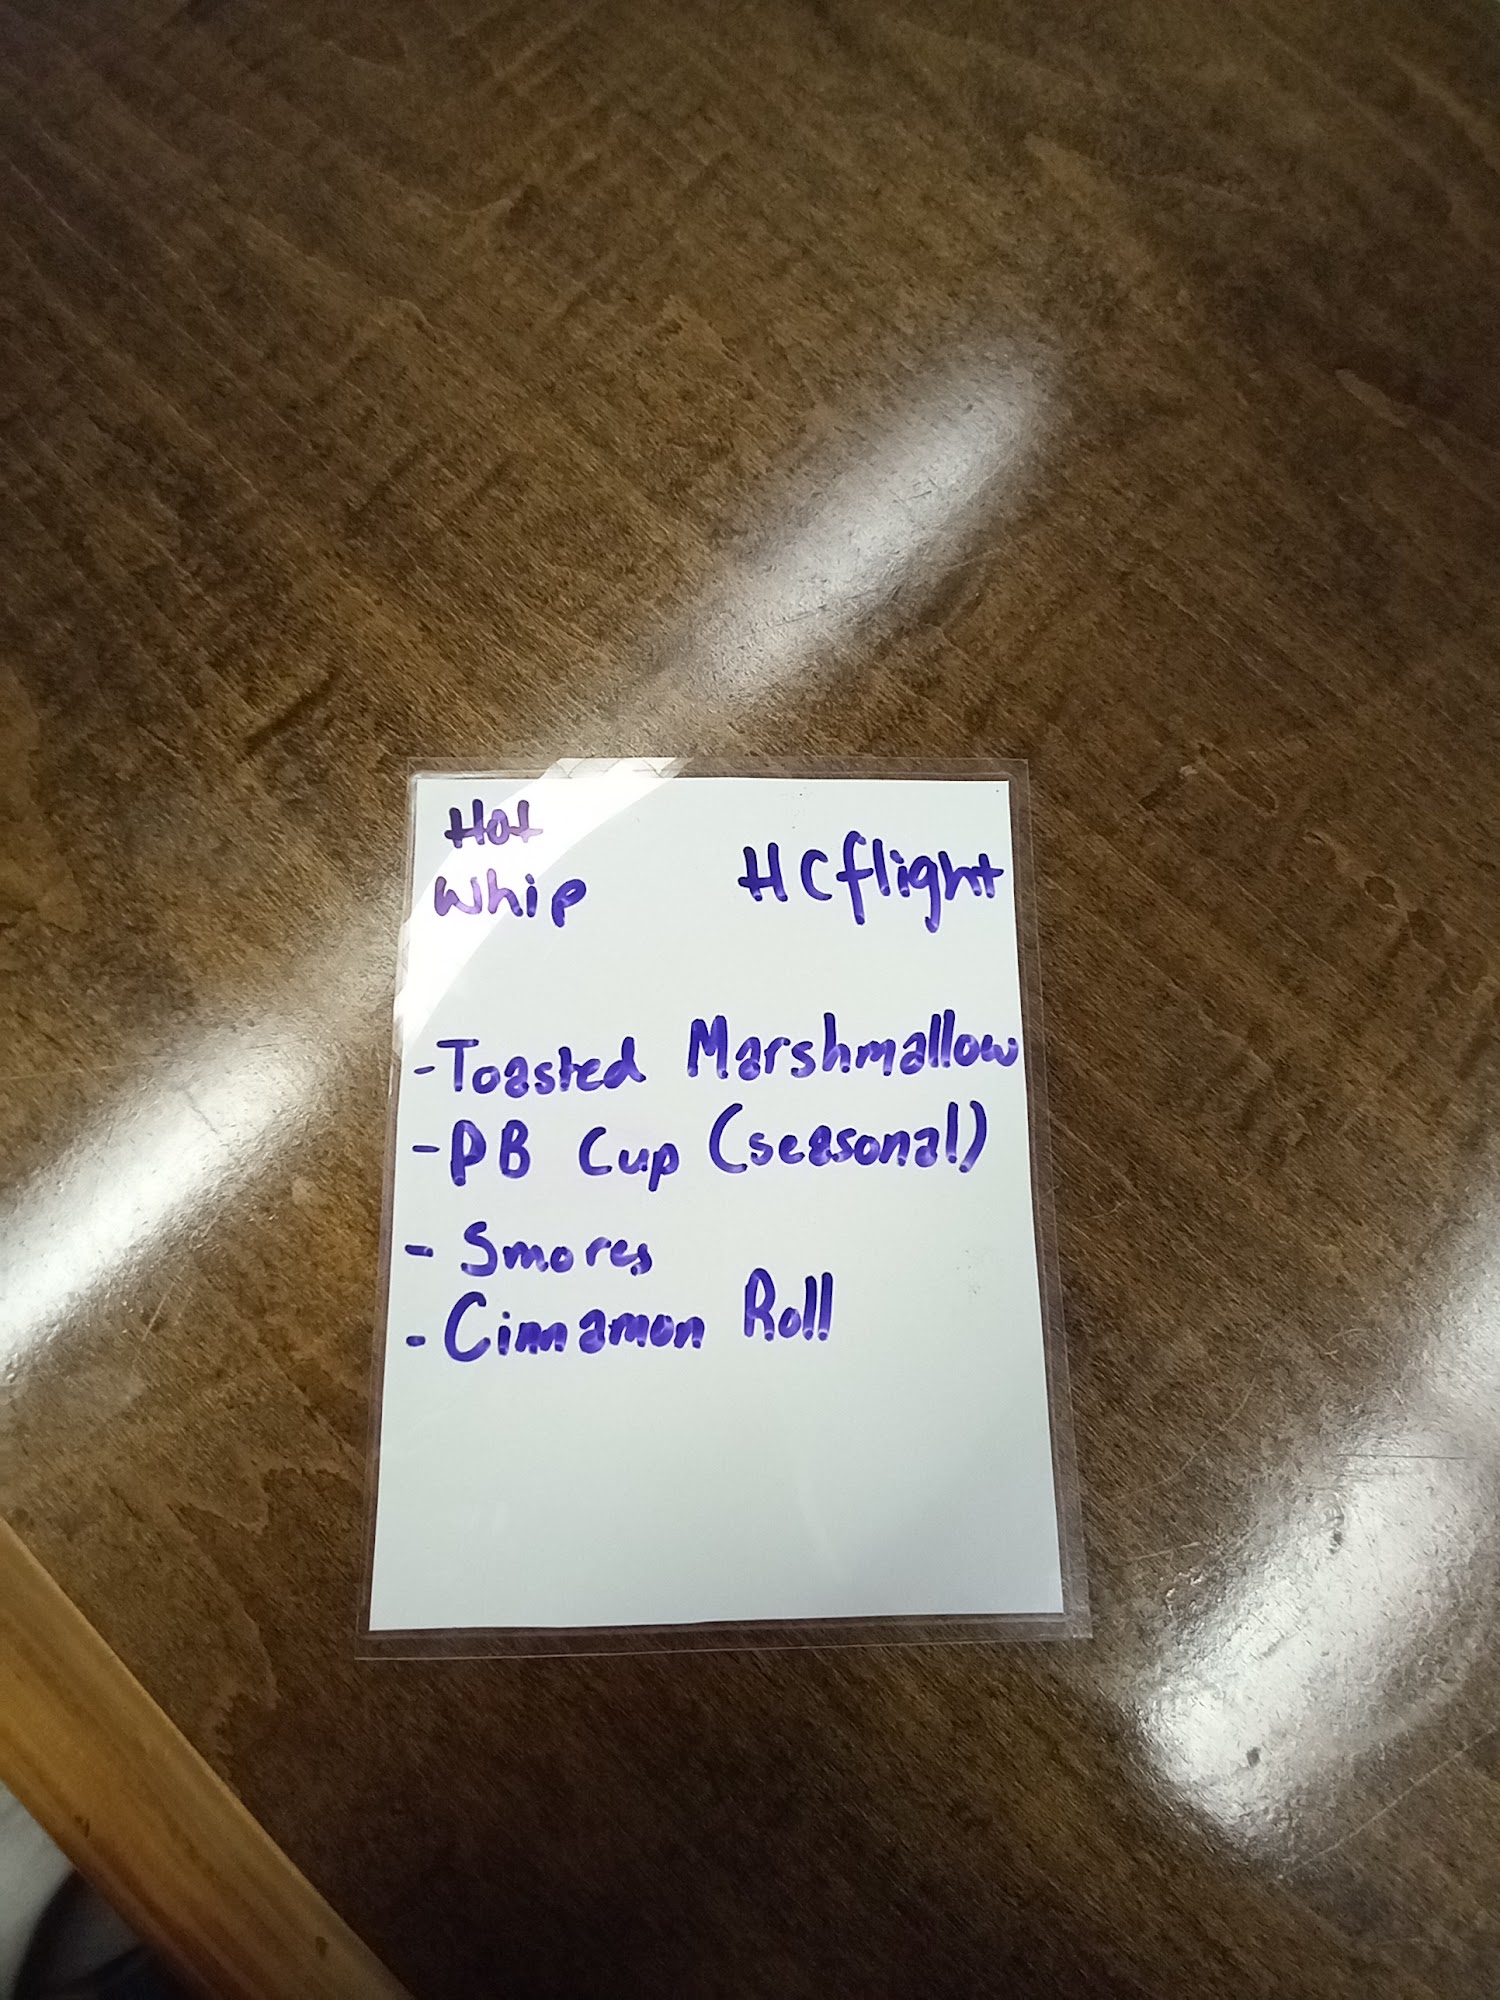 Hot
Whip
HC flight
- Toasted Marshmallow
- PB Cup (seasonal)
- Smores
- Cinnamon Roll